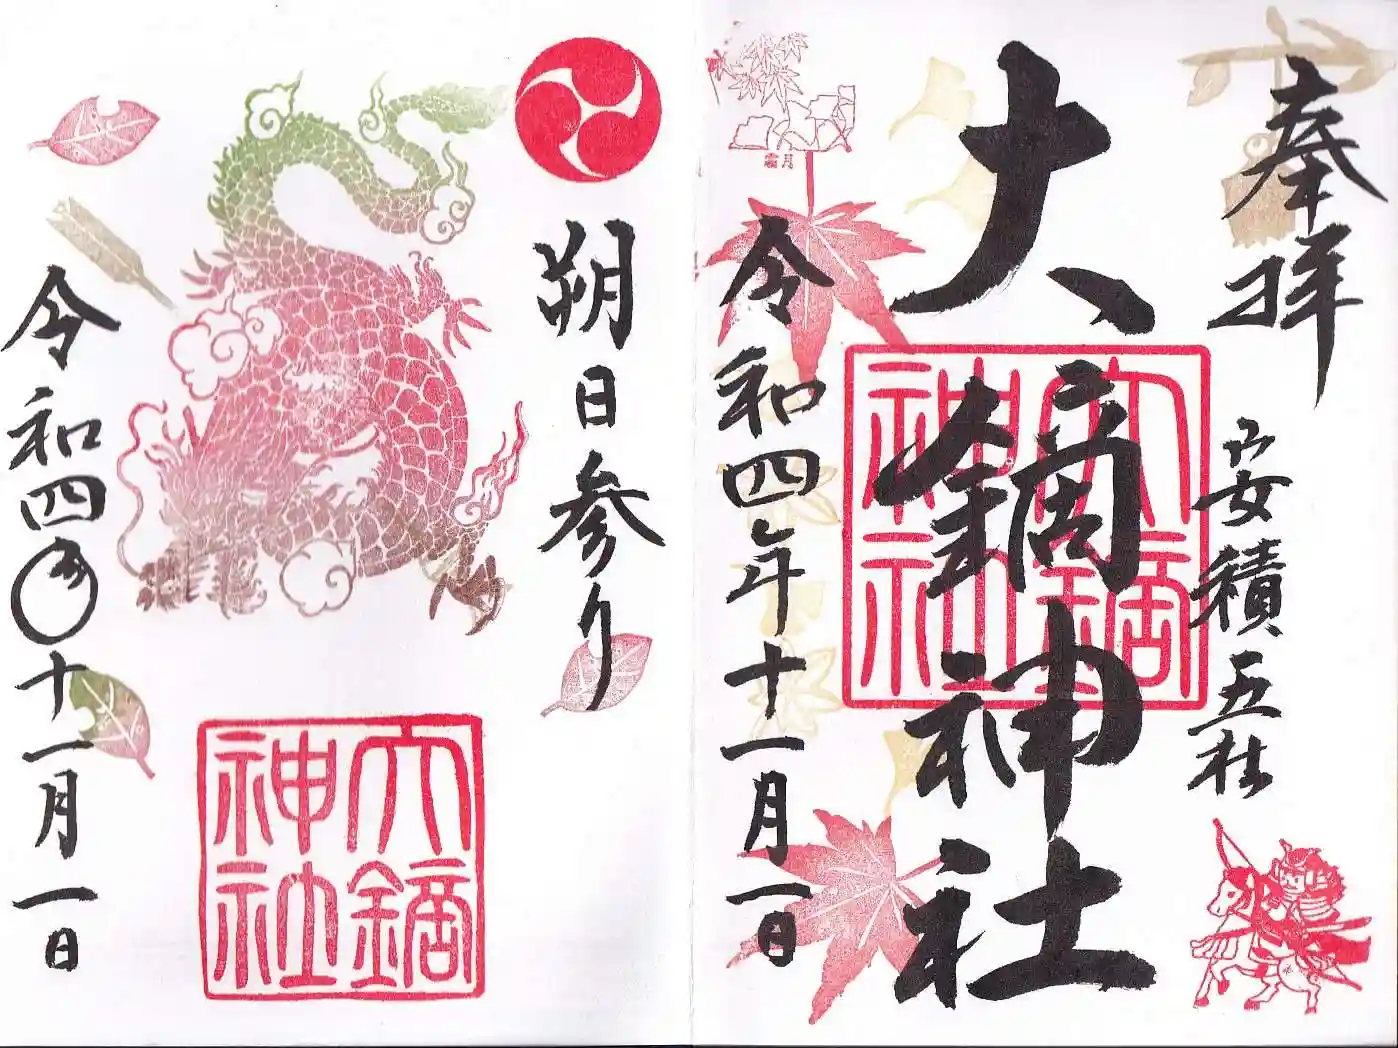 奉拝
安積五社
大鏑神社
大鏑神社
霜月
令和四年十一月一日
朔日参り
大鏑神社
令和四年十一月一日